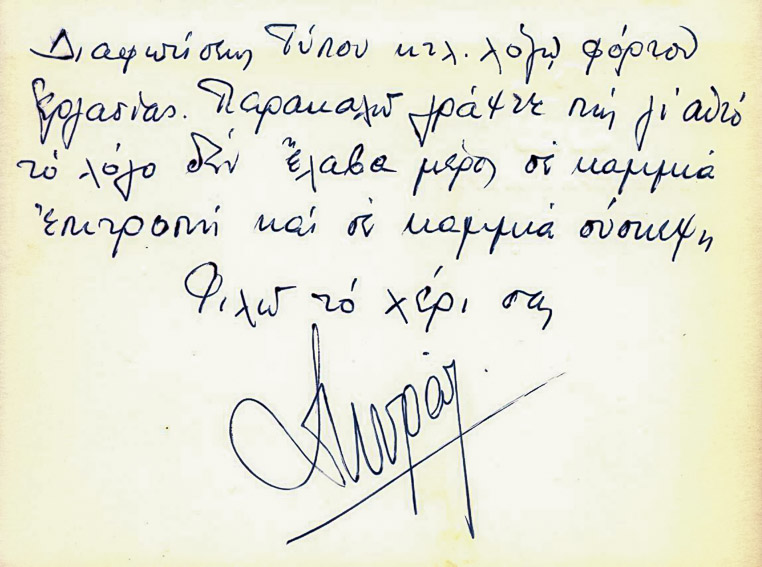 Διαφωτίσεως Τύπου κτλ. λόγῳ φόρτου
ἐργασίας. Παρακαλῶ γράψτε πώς γι' αὐτό
τό λόγο δέν ἔλαβα μέρος σέ καμμιά
ἐπιτροπή καί σέ καμμιά σύσκεψη
Φιλῶ τό χέρι σας